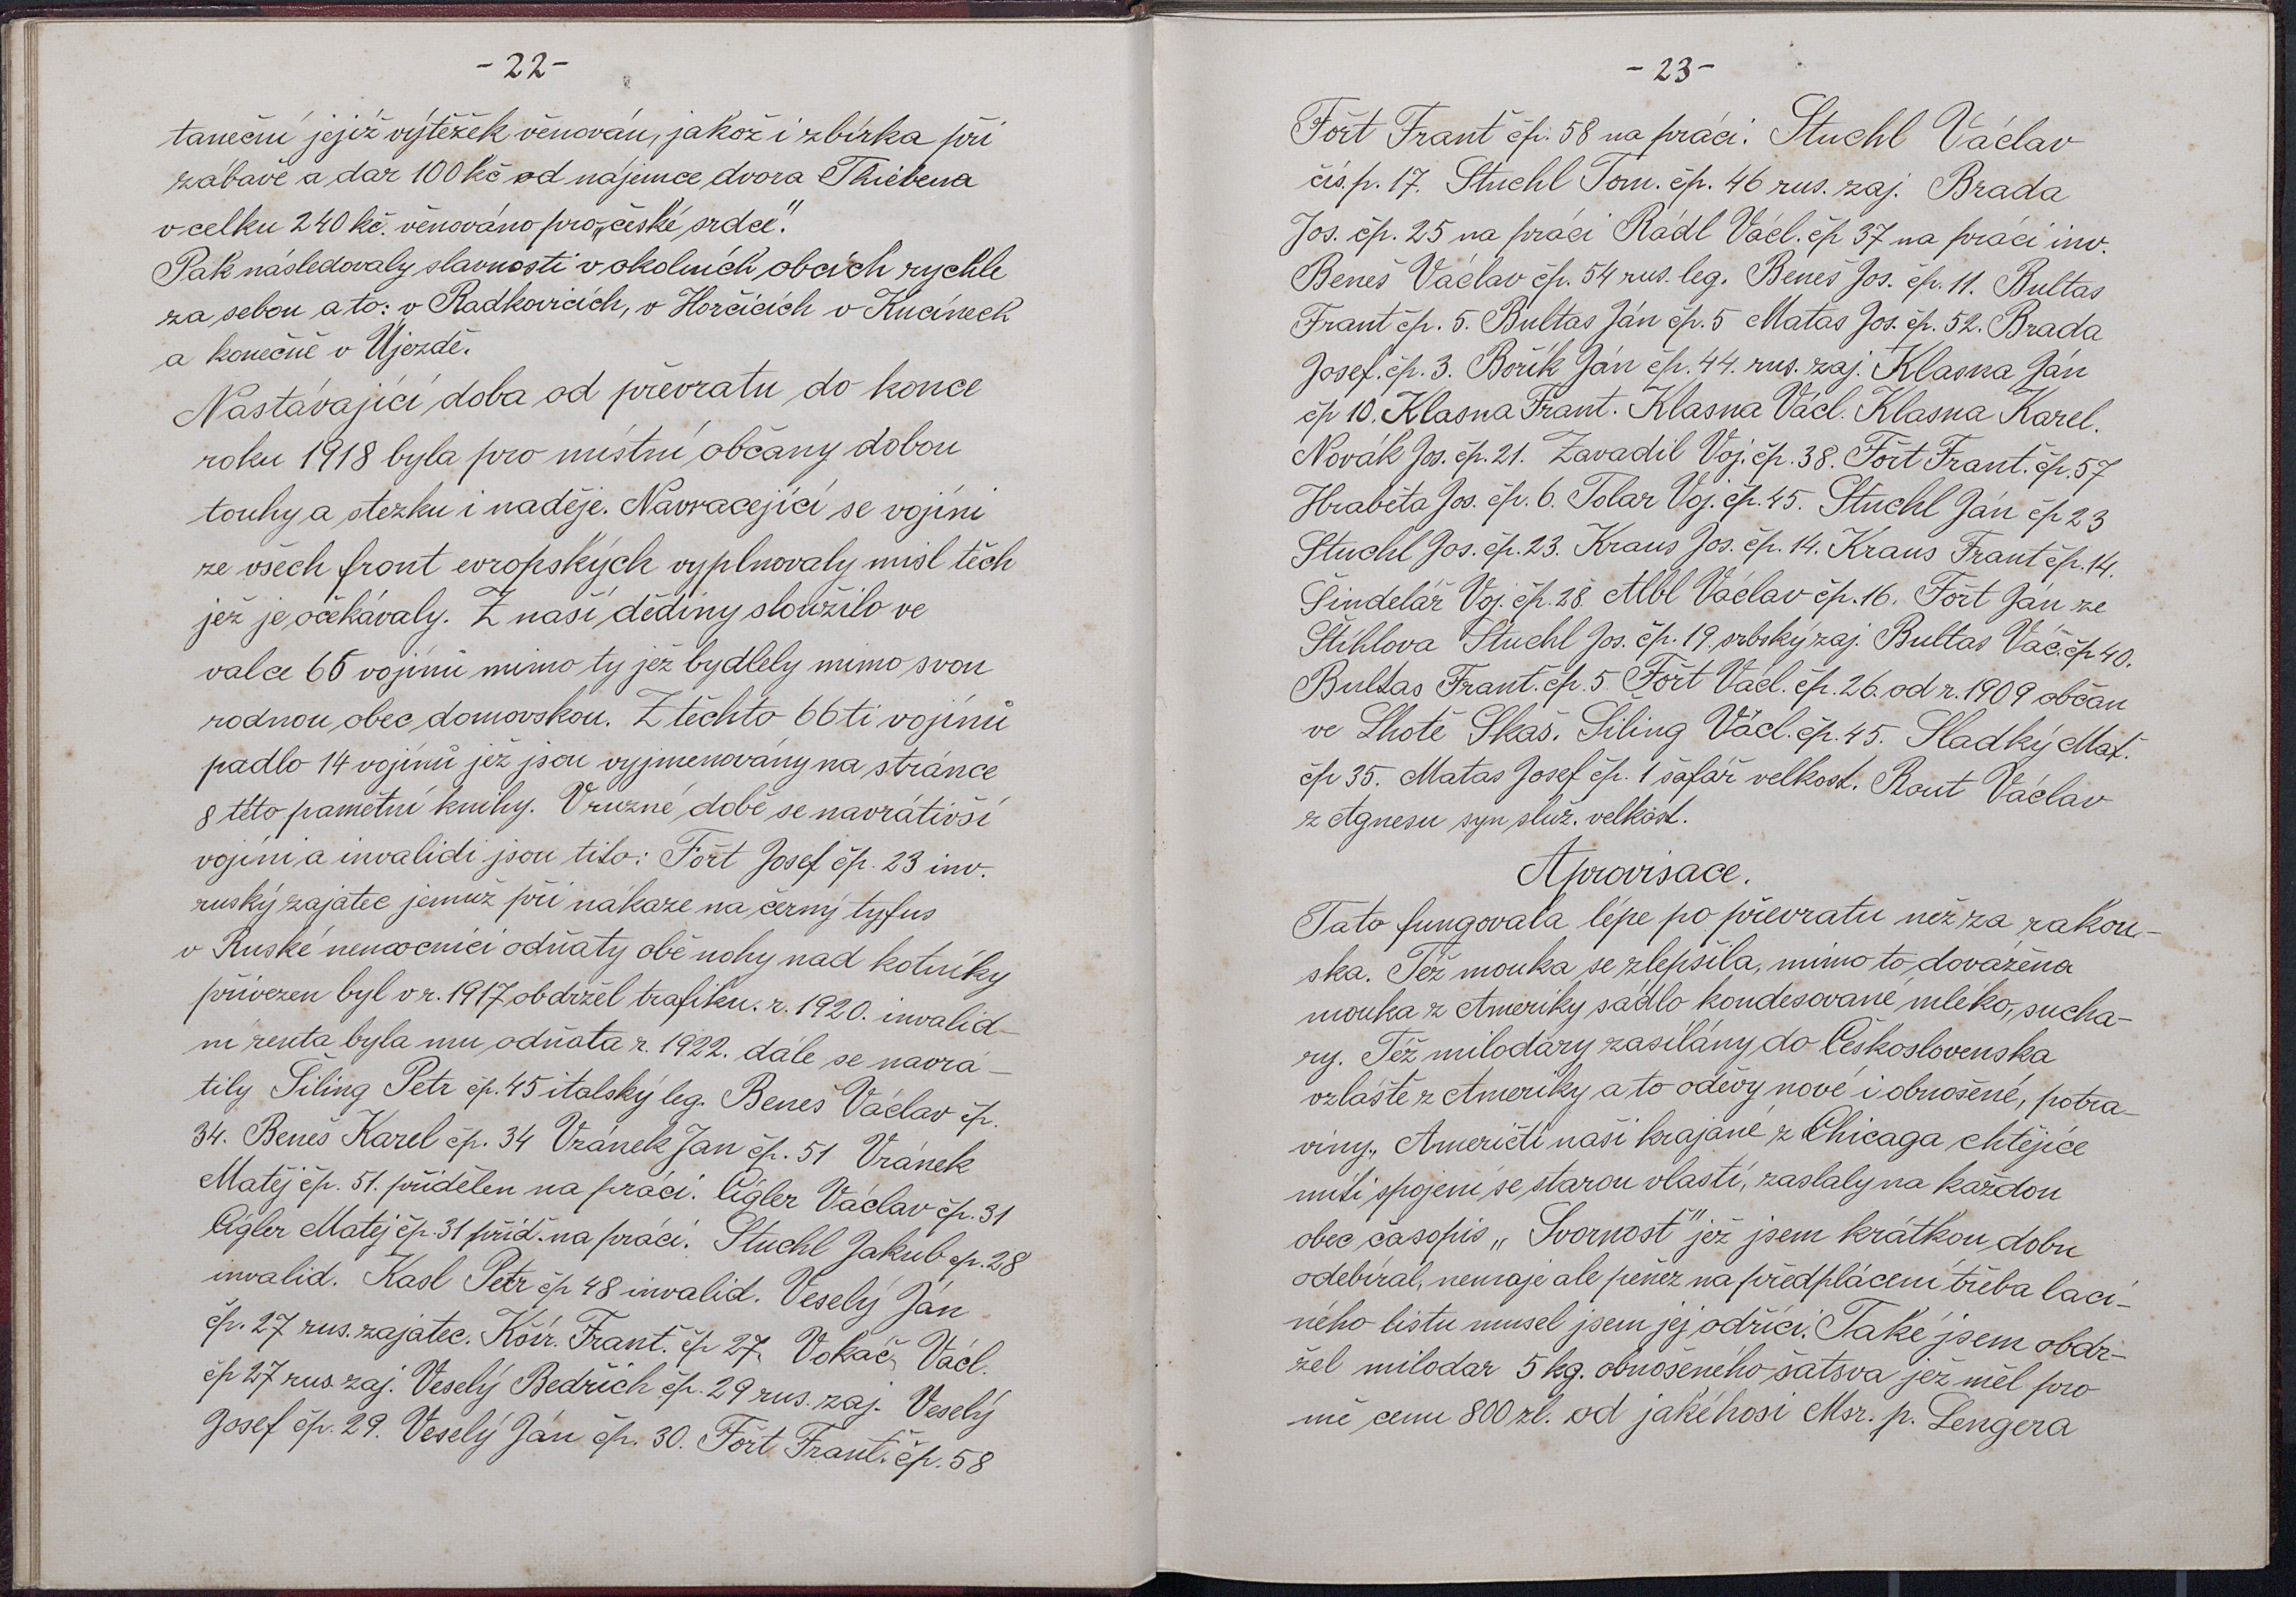 -22-
taneční jejiž výtěžek věnován, jakož i zbírka při
zábavě a dar 100 kč od nájemce dvora Thiebena
v celku 240 kč. věnováno pro „české srdce".
Pak následovaly slavnosti v okolních obcích rychle
za sebou a to: v Radkovicích, v Horčicích v Kucínech
a konečně v Újezdě.
Nastávající doba od převratu do konce
roku 1918 byla pro místní občany dobou
touhy a stezku i naděje. Navracející se vojíni
ze všech front evropských vyplnovaly misl těch
jež je očekávaly. Z naší dědiny sloužilo ve
valce 66 vojínů mimo ty jež bydlely mimo svou
rodnou obec domovskou. Z těchto 66 ti vojínů
padlo 14 vojínů jež jsou vyjmenovány na stránce
8 této pamětní knihy. V ruzné době se navrátivší
vojíni a invalidi jsou tito: Fořt Josef čp. 23 inv.
ruský zajatec jemuž při nákaze na černý tyfus
v Ruské nemocnici odňaty obě nohy nad kotníky
přivezen byl v r. 1917 obdržel trafiku. r. 1920. invalid-
ní renta byla mu odňata r. 1922. dále se navrá-
tily Šiling Petr čp. 45 italský leg. Beneš Václav čp.
34. Beneš Karel čp. 34 Vránek Jan čp. 51 Vránek
Matěj čp. 51. přidělen na práci. Cígler Václav čp. 31
Cígler Matěj čp. 31 příd. na práci. Stuchl Jakub čp. 28
invalid. Kasl Petr čp 48 invalid. Veselý Ján
čp. 27 rus. zajatec. Kóir. Frant. čp 27. Vokáč Václ.
čp 27 rus. zaj. Veselý Bedřich čp. 29 rus. zaj. Veselý
Josef čp. 29. Veselý Ján čp. 30. Fořt Frant. čp. 58
-23-
Fořt Frant čp. 58 na práci. Stuchl Václav
čís. p. 17. Stuchl Tom. čp. 46 rus. zaj. Brada
Jos. čp. 25 na práci Rádl Václ. čp 37 na práci inv.
Beneš Václav čp. 54 rus. leg. Beneš Jos. čp. 11. Bultas
Frant čp. 5. Bultas Ján čp. 5 Matas Jos. čp. 52. Brada
Josef. čp. 3. Bořík Ján čp. 44. rus. zaj. Klasna Ján
čp 10. Klasna Frant. Klasna Václ. Klasna Karel.
Novák Jos. čp. 21. Zavadil Voj. čp. 38. Fořt Frant. čp. 57
Hraběta Jos. čp. 6. Tolar Voj. čp. 45. Stuchl Ján čp 23
Stuchl Jos. čp. 23. Kraus Jos. čp. 14. Kraus Frant čp. 14.
Šindelář Voj. čp. 28. Albl Václav čp. 16. Fořt Ján ze
Štihlova Stuchl Jos. čp. 19. srbský zaj. Bultas Vác. čp 40.
Bultas Frant. čp. 5 Fořt Václ. čp. 26. od r. 1909 občan
ve Lhotě Skaš. Siling Václ. čp. 45. Sladký Mat.
čp 35. Matas Josef čp. 1 šafář velkost. Rout Václav
z Agnesu syn služ. velkost.
Aprovisace.
Tato fungovala lépe po převratu než za rakou-
ska. Též mouka se zlepšila, mimo to dovážena
mouka z Ameriky sádlo kondesované mléko, sucha-
ry. Též milodáry zasílány do Československa
vzláště z Ameriky a to oděvy nové i obnošené, potra-
viny., Američtí naši krajané z Chicaga chtějíce
míti spojení se starou vlastí, zaslaly na každou
obec časopis „Svornost" jež jsem krátkou dobu
odebíral, nemaje ale peněz na předplácení třeba laci-
ného listu musel jsem jej odříci. Také jsem obdr-
žel milodar 5 kg. obnošeného šatsva jež měl pro
mě cenu 800 zl. od jakéhosi Msr. p. Lengera